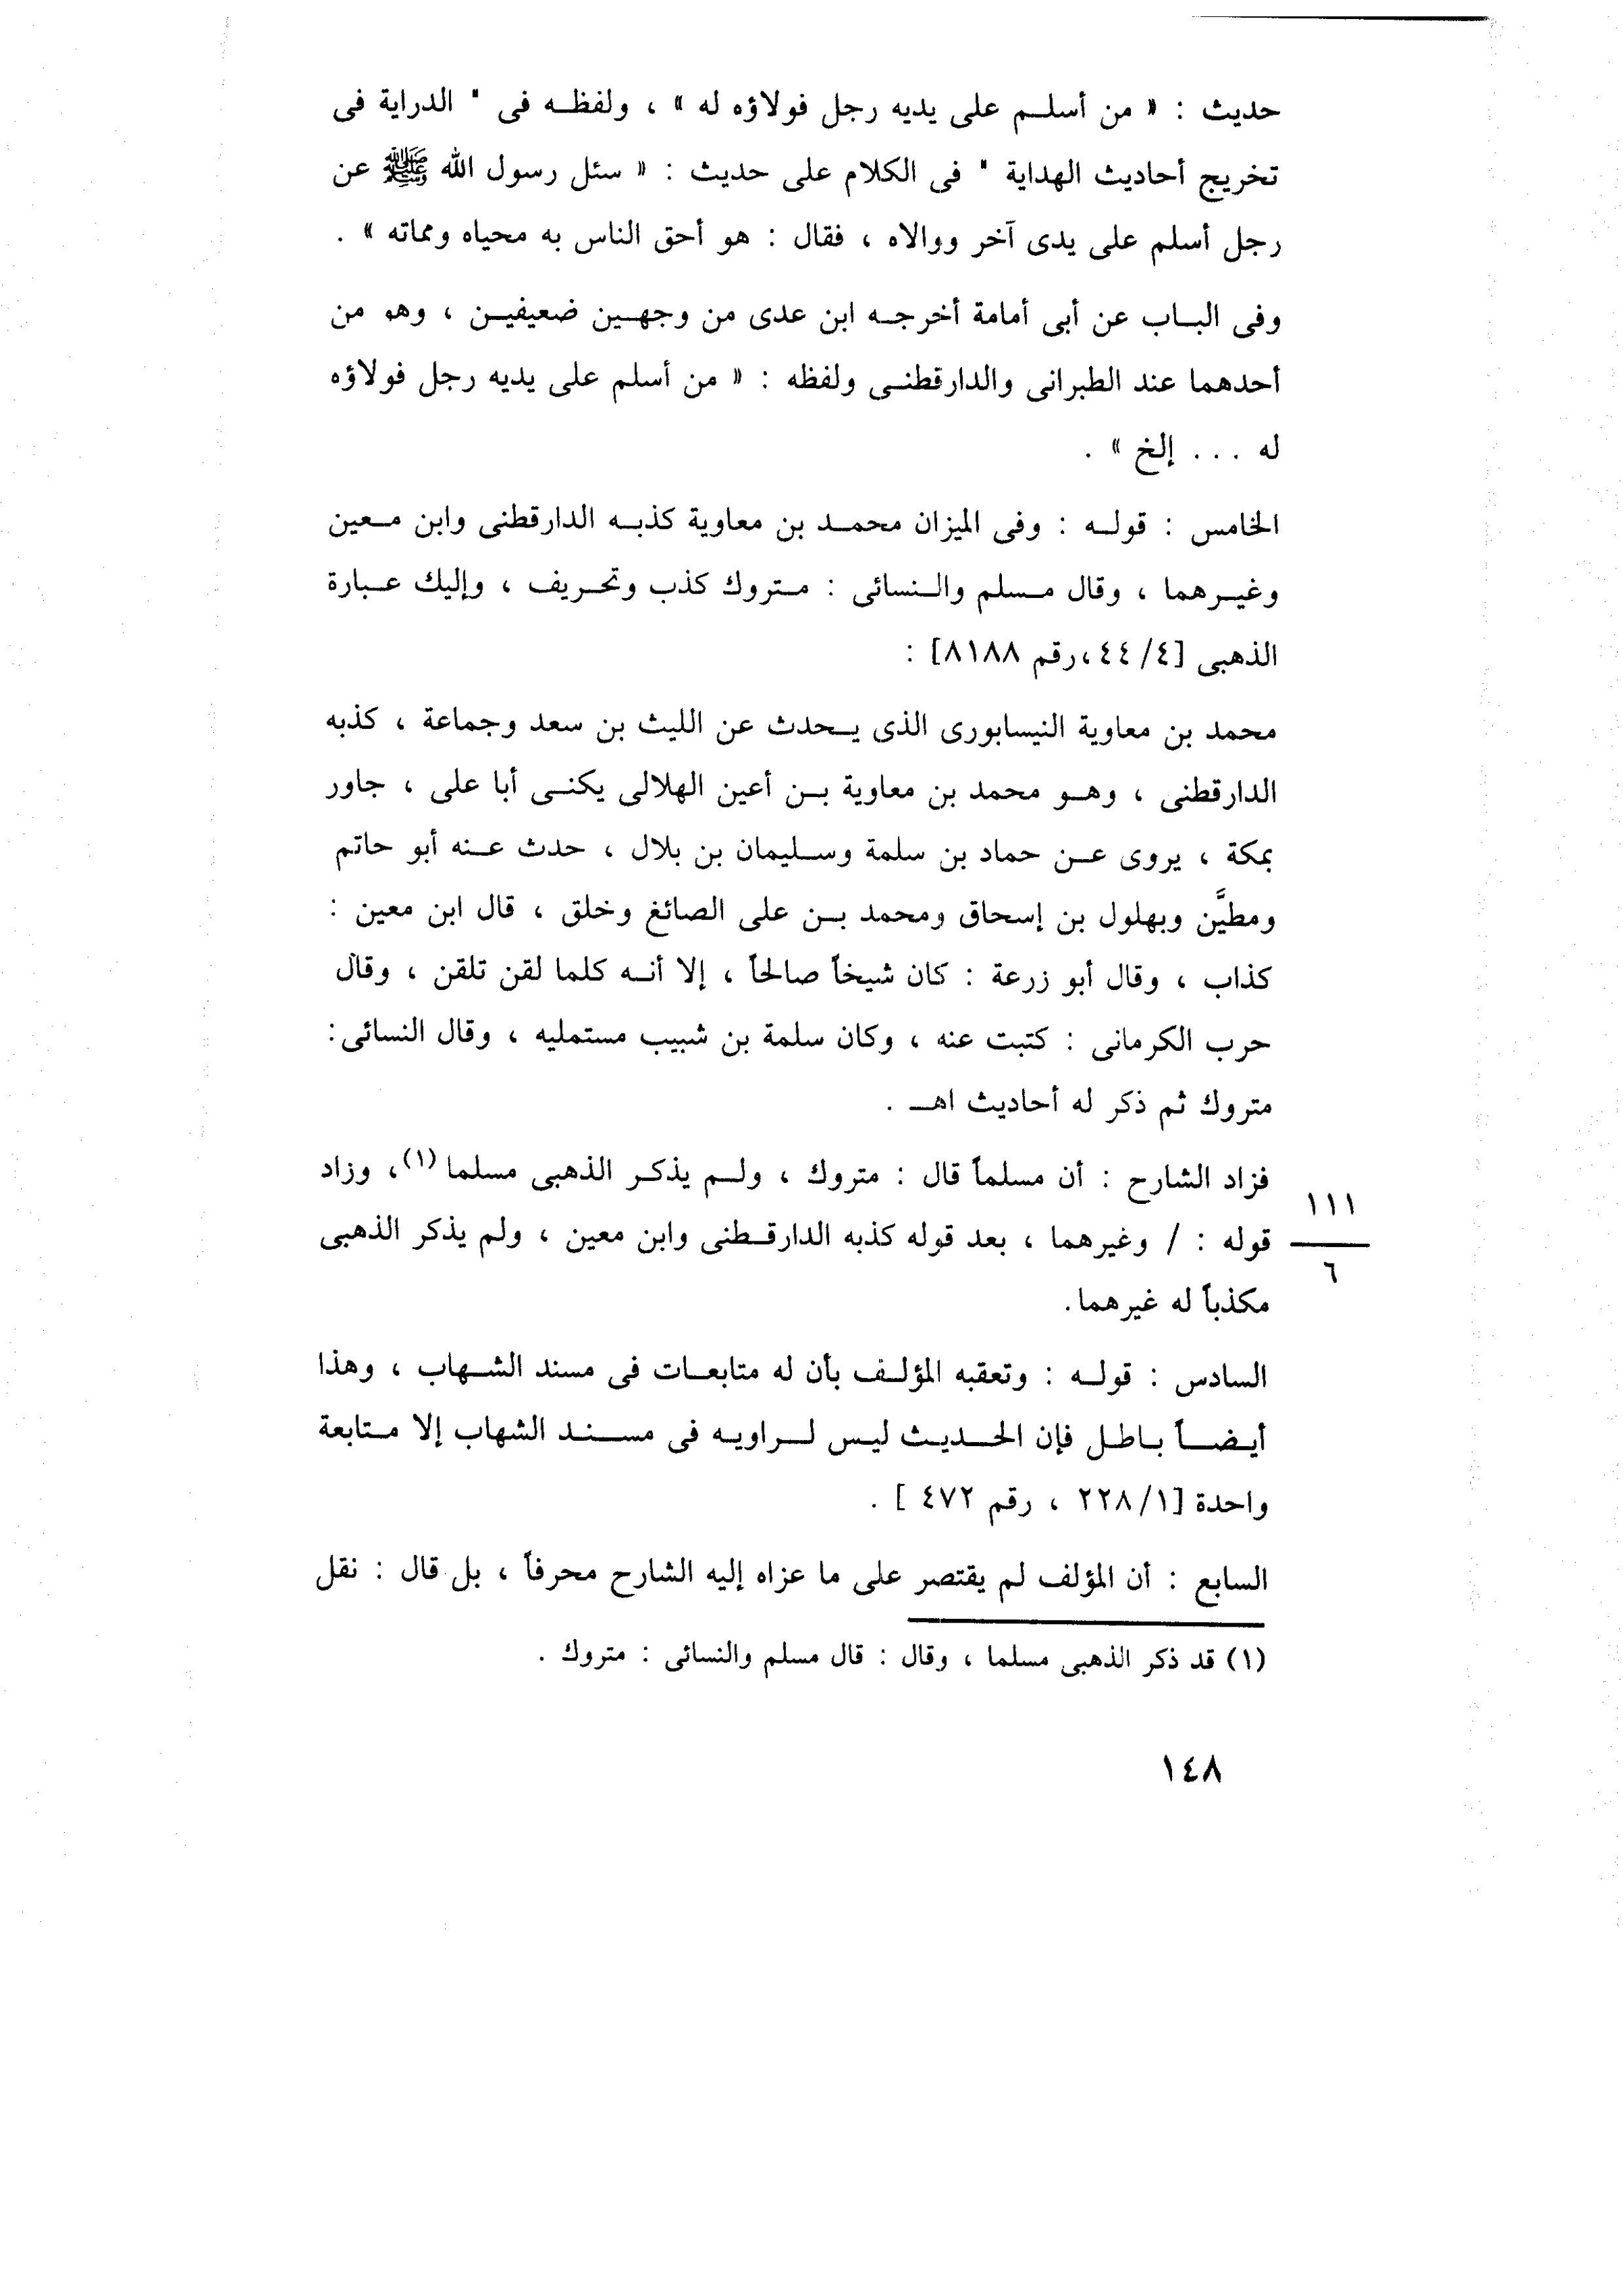 حديث : « من أسلم على يديه رجل فولاؤه له » ، ولفظه فى " الدراية فى
تخريج أحاديث الهداية " فى الكلام على حديث : « سئل رسول الله ﷺ عن
رجل أسلم على يدى آخر ووالاه ، فقال : هو أحق الناس به محياه ومماته » .
وفى الباب عن أبى أمامة أخرجه ابن عدى من وجهين ضعيفين ، وهو من
أحدهما عند الطبرانى والدارقطنى ولفظه : « من أسلم على يديه رجل فولاؤه
له ... إلخ » .
الخامس : قوله : وفى الميزان محمد بن معاوية كذبه الدارقطنى وابن معين
وغيرهما ، وقال مسلم والنسائى : متروك كذب وتحريف ، وإليك عبارة
الذهبى [٤/ ٤٤ ،رقم ٨١٨٨] :
محمد بن معاوية النيسابورى الذى يحدث عن الليث بن سعد وجماعة ، كذبه
الدارقطنى ، وهو محمد بن معاوية بن أعين الهلالى يكنى أبا على ، جاور
بمكة ، يروى عن حماد بن سلمة وسليمان بن بلال ، حدث عنه أبو حاتم
ومطيَّن وبهلول بن إسحاق ومحمد بن على الصائغ وخلق ، قال ابن معين :
كذاب ، وقال أبو زرعة : كان شيخاً صالحاً ، إلا أنه كلما لقن تلقن ، وقال
حرب الكرمانى : كتبت عنه ، وكان سلمة بن شبيب مستمليه ، وقال النسائى :
متروك ثم ذكر له أحاديث اهـ .
فزاد الشارح : أن مسلماً قال : متروك ، ولم يذكر الذهبى مسلما (١)، وزاد
١١١
قوله : / وغيرهما ، بعد قوله كذبه الدارقطنى وابن معين ، ولم يذكر الذهبى
٦
مكذباً له غيرهما.
السادس : قوله : وتعقبه المؤلف بأن له متابعات فى مسند الشهاب ، وهذا
أيضاً باطل فإن الحديث ليس لراويه فى مسند الشهاب إلا متابعة
واحدة [١/ ٢٢٨ ، رقم ٤٧٢ ] .
السابع : أن المؤلف لم يقتصر على ما عزاه إليه الشارح محرفاً ، بل قال : نقل
(١) قد ذكر الذهبى مسلما ، وقال : قال مسلم والنسائى : متروك .
١٤٨